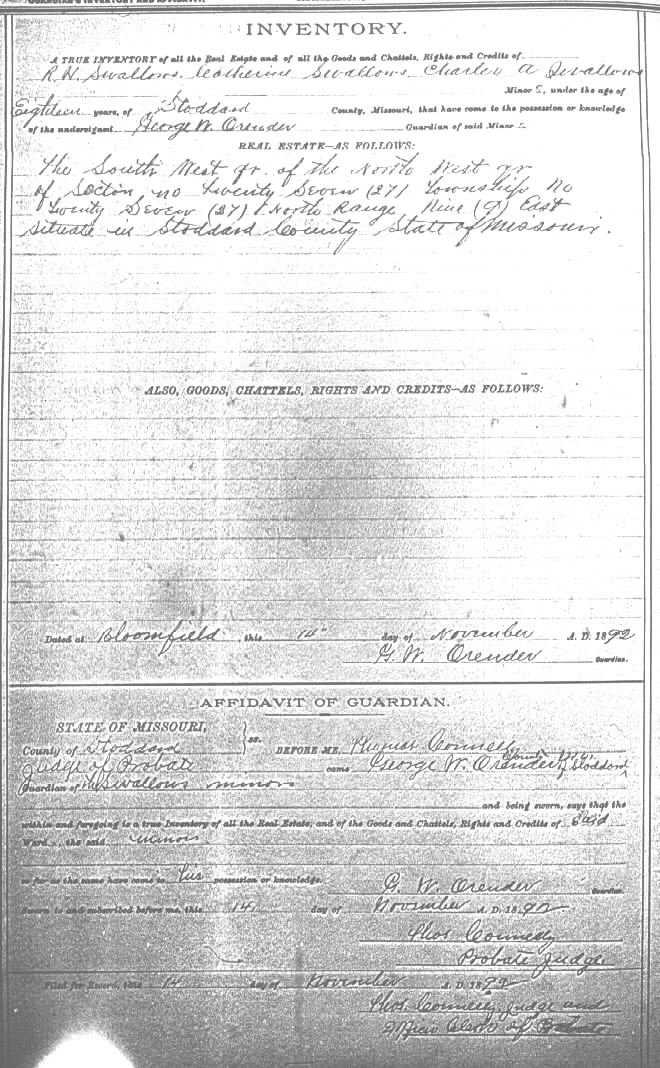 GUARDIAN'S INVENTORY AND AFFIDAVIT.
INVENTORY.
A TRUE INVENTORY of all the Real Estate and of all the Goods and Chattels, Rights and Credits of
R. H. Swallows. Catherine Swallows. Charles A Swallows
Minor S, under the age of
Eighteen years, of Stoddard County, Missouri, that have come to the possession or knowledge
of the undersigned George W. Orender Guardian of said Minor S.
REAL ESTATE—AS FOLLOWS:
The South West qr. of the North West qr
of Secton no Twenty Seven (27) Township No
Twenty Seven (27) North Range Nine (9) East
Situate in Stoddard County State of Missouri.
ALSO, GOODS, CHATTELS, RIGHTS AND CREDITS—AS FOLLOWS:
Dated at Bloomfield, this 14" day of November A. D. 1892
G. W. Orender Guardian.
AFFIDAVIT OF GUARDIAN.
STATE OF MISSOURI,
County of Stoddard } ss. BEFORE ME, Connelly
Judge of Probate came George W. Orender of Stoddard
Guardian of the Swallows minors
and being sworn, says that the
within and foregoing is a true Inventory of all the Real Estate, and of the Goods and Chattels, Rights and Credits of Said
Ward , the said minors
so far as the same have come to his possession or knowledge.
G. W. Orender Guardian.
Sworn to and subscribed before me, this 14 day of November A. D. 1892
Thos Connelly
Probate Judge
Filed for Record, this 14 day of November A. D. 1892
Thos Connelly Judge and
Officio Clerk of Probate